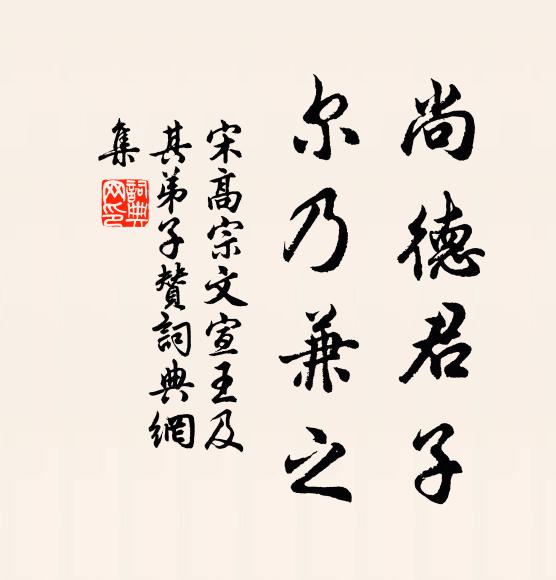 尚德君子
尔乃兼之
宋高宗文宣王及
其弟子赞詞典網
集
詞典
网印